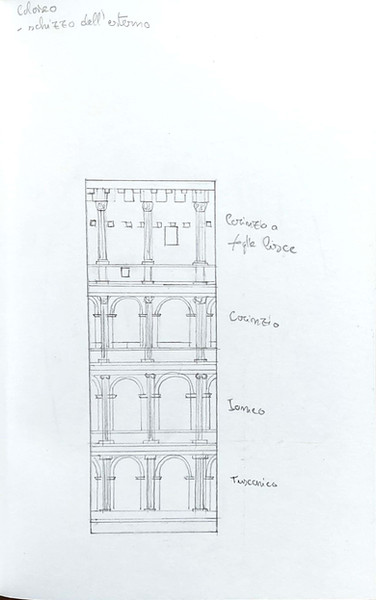 Colosseo
- schizzo dell'esterno
Corinzio a
foglie lisce
Corinzio
Ionico
Tuscanico